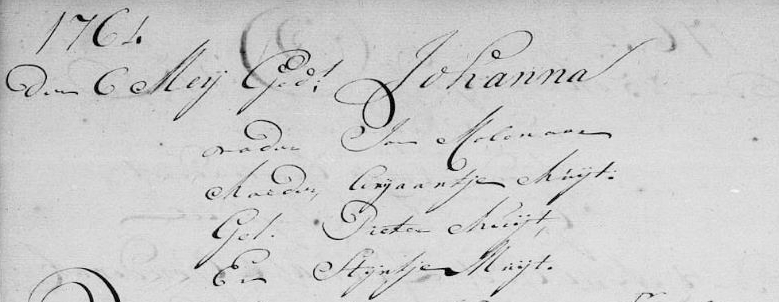 1764.
Den 6 Meij Ged.t Johanna
vader Jan Molenaar
Moeder, Arjaantje Muijt.
Get. Pieter Muijt,
En Stijntje Muijt.